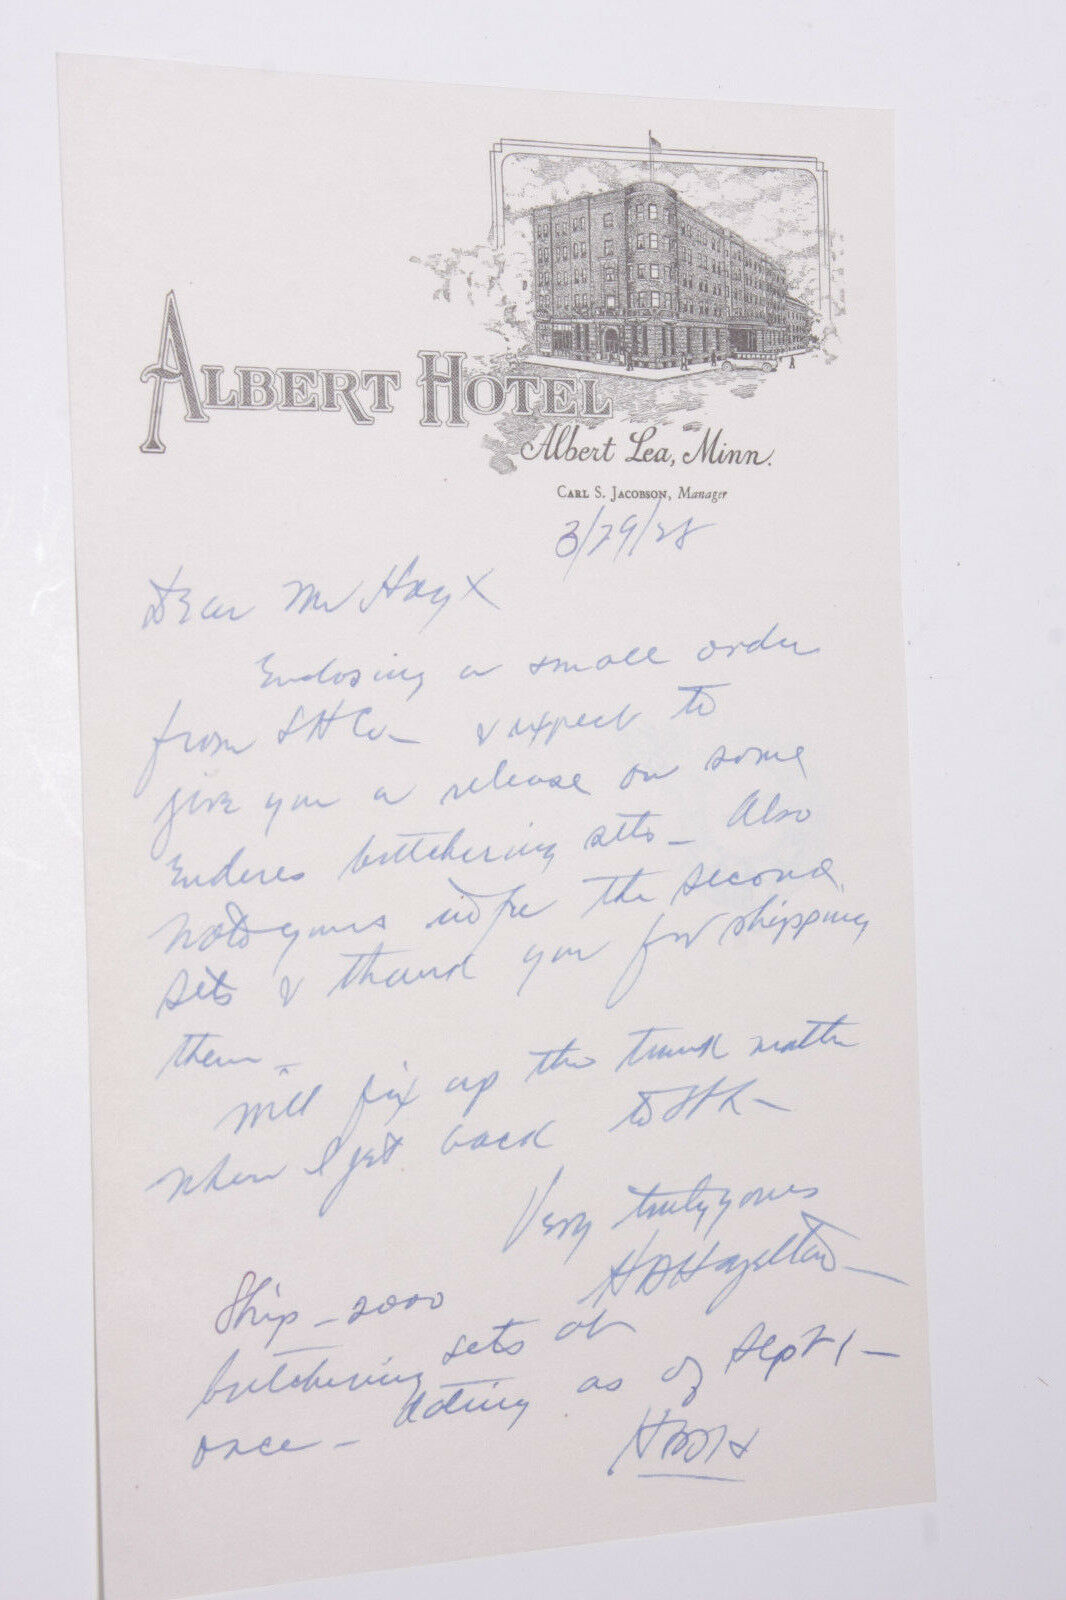 ALBERT HOTEL
Albert Lea, Minn.
CARL S. JACOBSON, Manager
3/29/38
Dear Mr
Enclosing a small order
from SHCo - & expect to
give you a release on some
Enderes butchering sets - Also
Note yours in re the second
sets & thank you for shipping
them -
Will fix up the trunk matter
when I get back to -
Very truly yours
HDHazelton -
Ship - 2000
butchering sets at
once - dating as of Sept 1 -